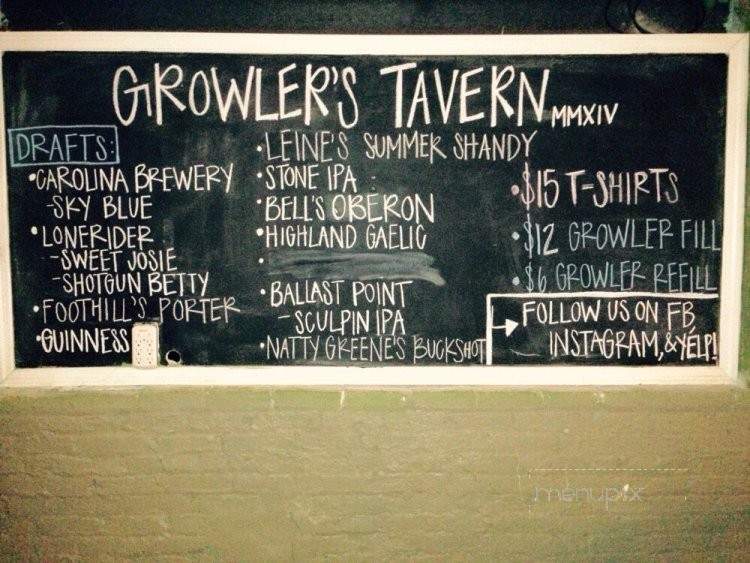 GROWLER'S TAVERN MMXIV
DRAFTS:
•CAROLINA BREWERY
-SKY BLUE
•LONERIDER
-SWEET JOSIE
-SHOTGUN BETTY
•FOOTHILL'S PORTER
•GUINNESS
•LEINE'S SUMMER SHANDY
•STONE IPA
•BELL'S OBERON
•HIGHLAND GAELIC
•
•BALLAST POINT
-SCULPIN IPA
•NATTY GREENE'S BUCKSHOT
•$15 T-SHIRTS
•$12 GROWLER FILL
•$6 GROWLER REFILL
→FOLLOW US ON FB
INSTAGRAM, & YELP!
menupix